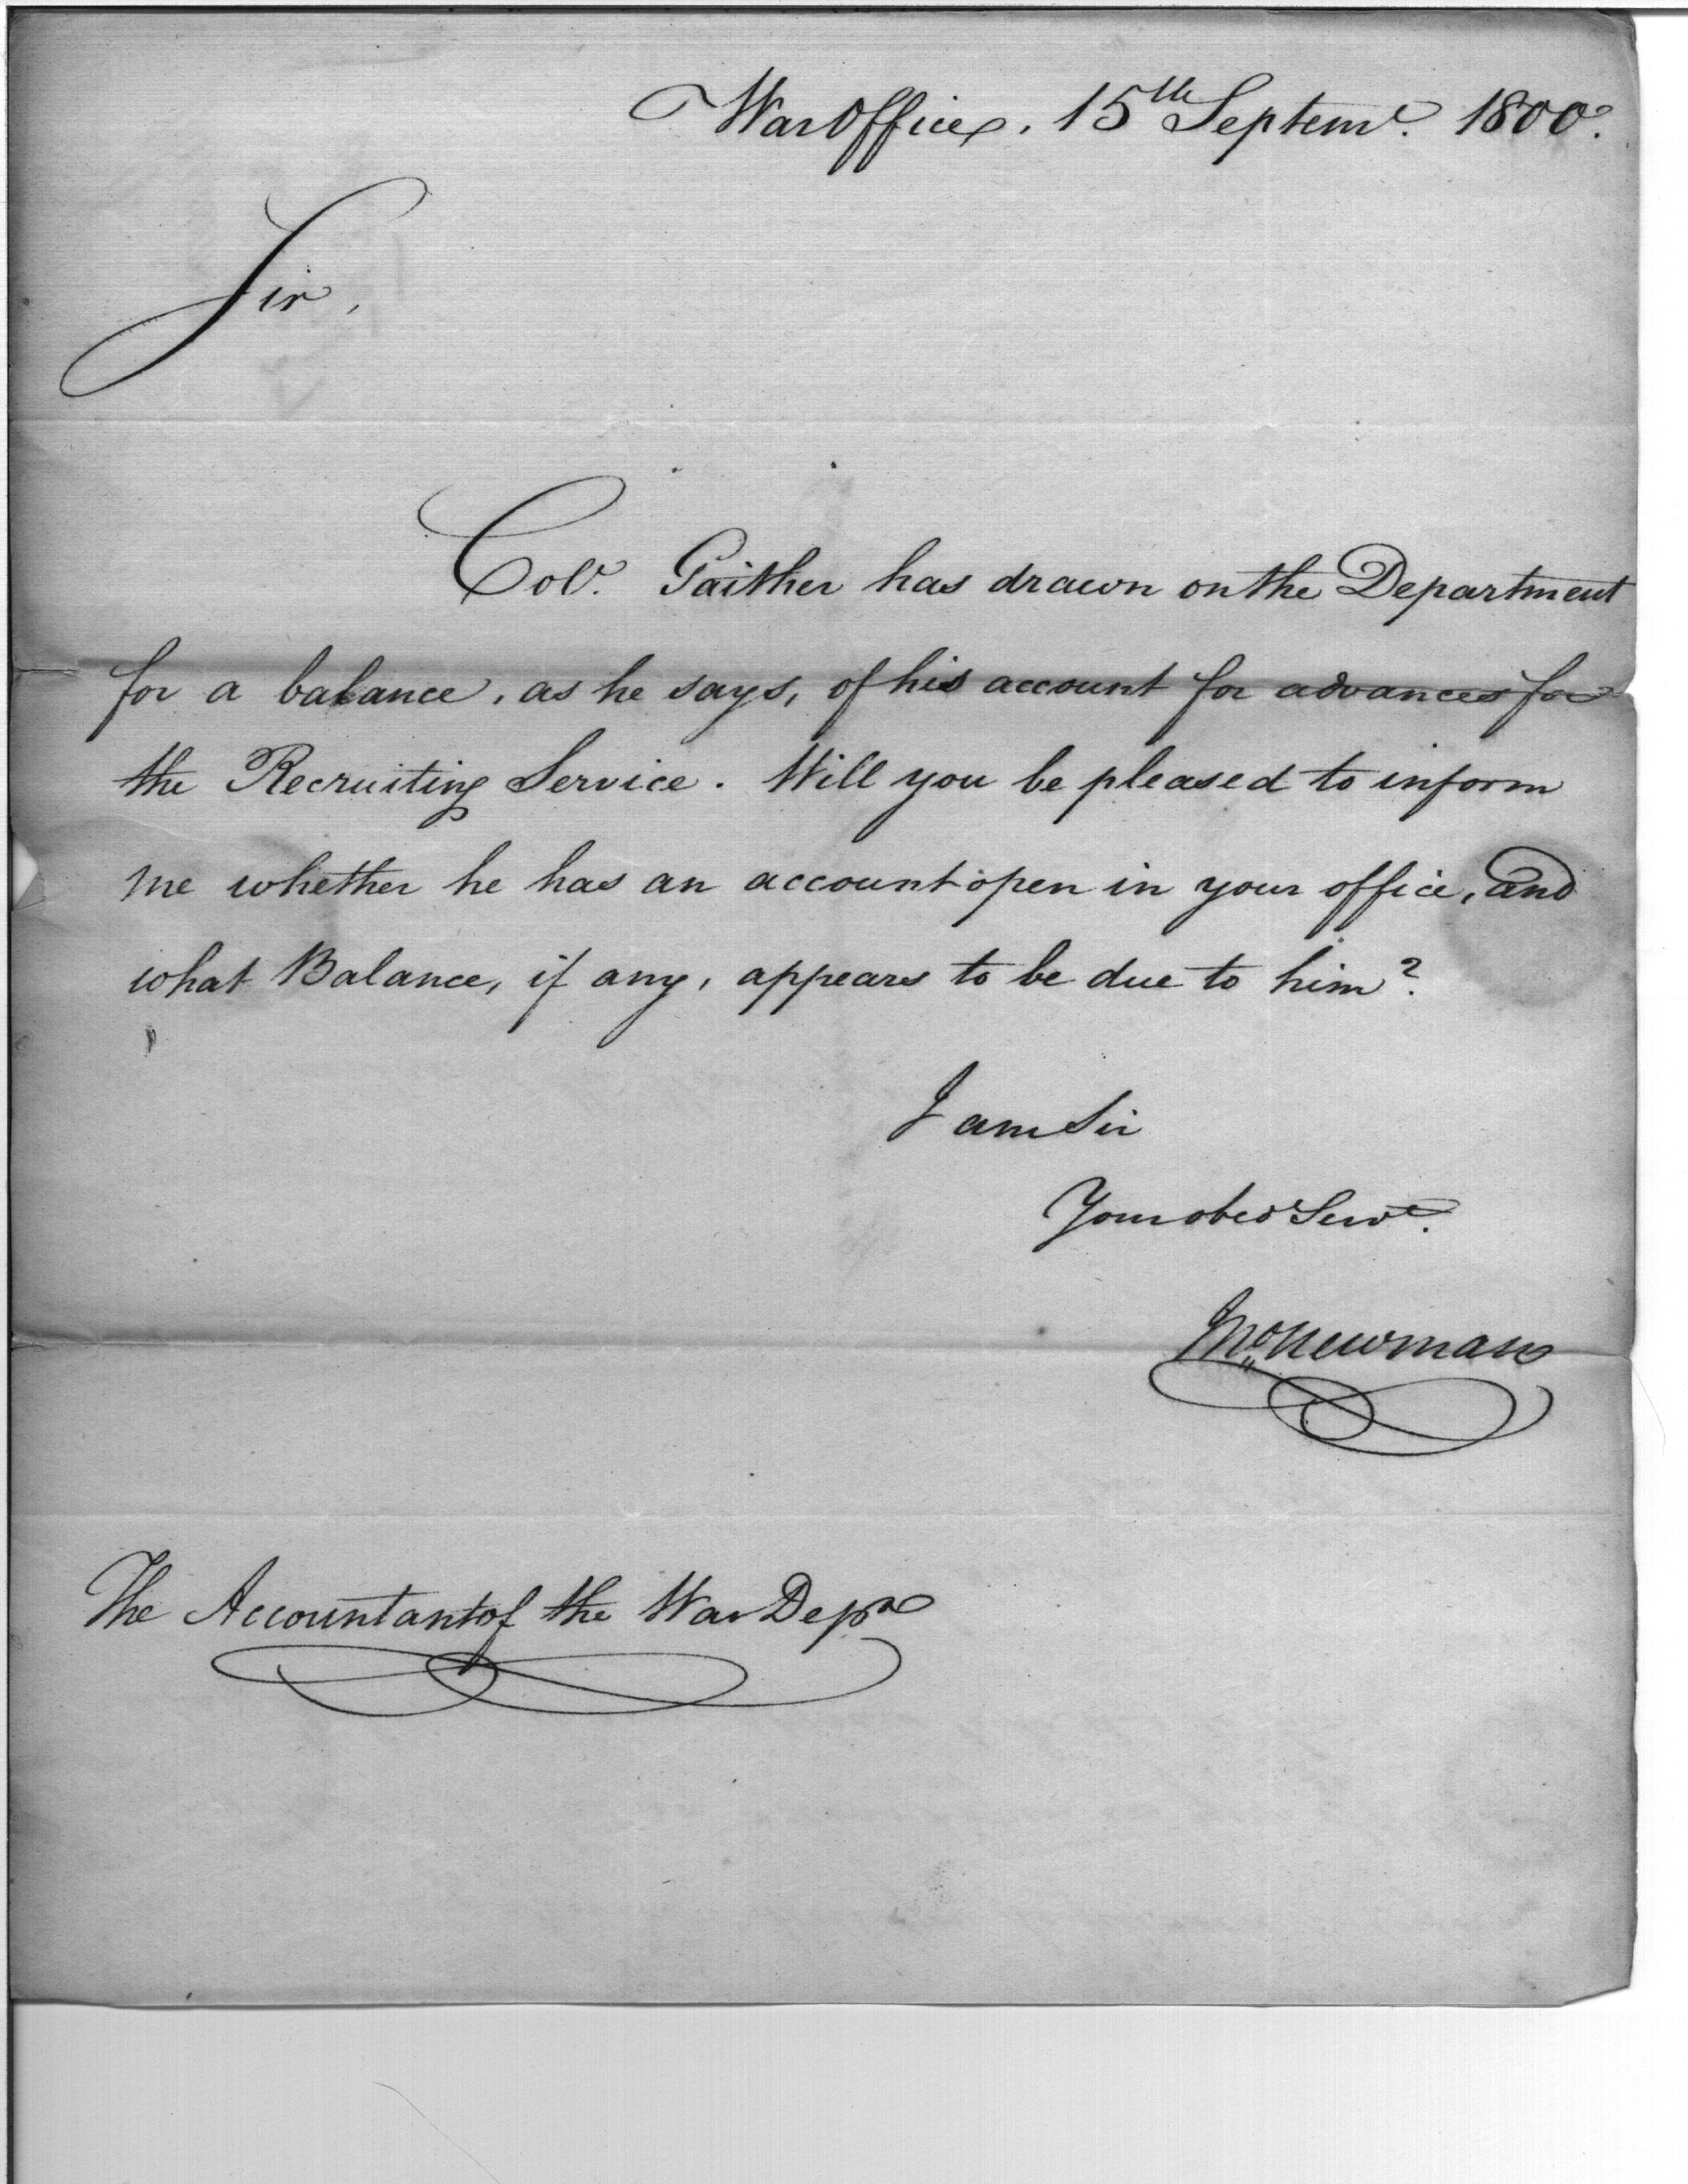 War Office, 15th Septemr. 1800.
Sir,
Colo. Gaither has drawn on the Department
for a balance, as he says, of his account for advances for
the Recruiting Service. Will you be pleased to inform
me whether he has an account open in your office, and
what Balance, if any, appears to be due to him?
I am Sir
Your obed Servt.
Jno Newman
The Accountant of the War Dept